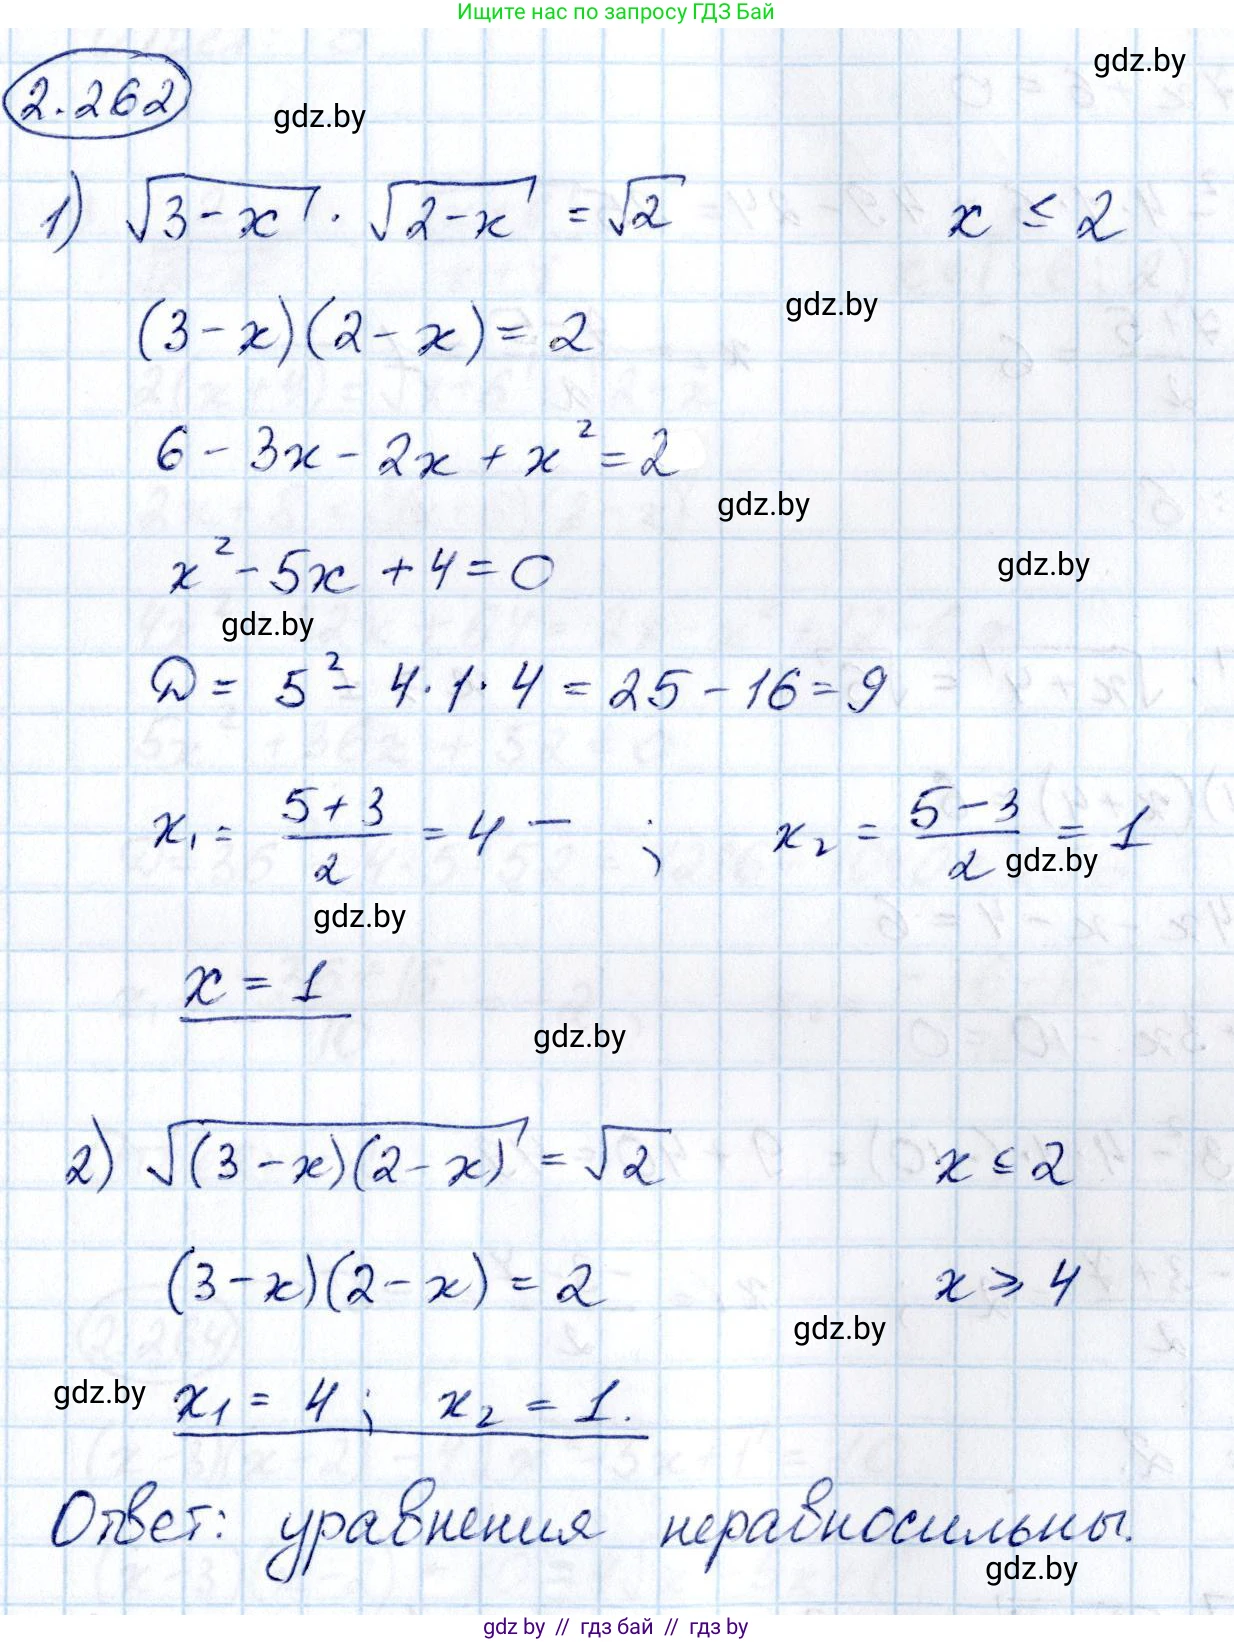 Ищите нас по запросу ГДЗ Бай
gdz.by
2.262
gdz.by
1) √3-x · √2-x = √2 x ≤ 2
gdz.by
(3-x)(2-x)=2
6-3x-2x+x²=2
gdz.by
x²-5x+4=0
gdz.by
gdz.by
D = 5²-4·1·4=25-16=9
x₁ = (5+3)/2 = 4 - ; x₂ = (5-3)/2 = 1
gdz.by
gdz.by
x = 1
gdz.by
2) √(3-x)(2-x) = √2 x ≤ 2
(3-x)(2-x) = 2 x ⩾ 4
gdz.by
gdz.by
x₁ = 4; x₂ = 1.
Ответ: уравнения неравносильны.
gdz.by
gdz by // гдз бай // гдз by